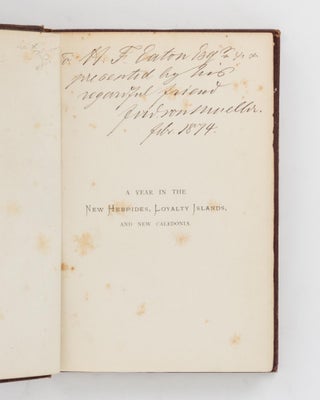 To H. F. Eaton Esqr &c &c
presented by his
regardful friend
Ferd. von Mueller.
Feb. 1874.
A YEAR IN THE
NEW HEBRIDES, LOYALTY ISLANDS,
AND NEW CALEDONIA